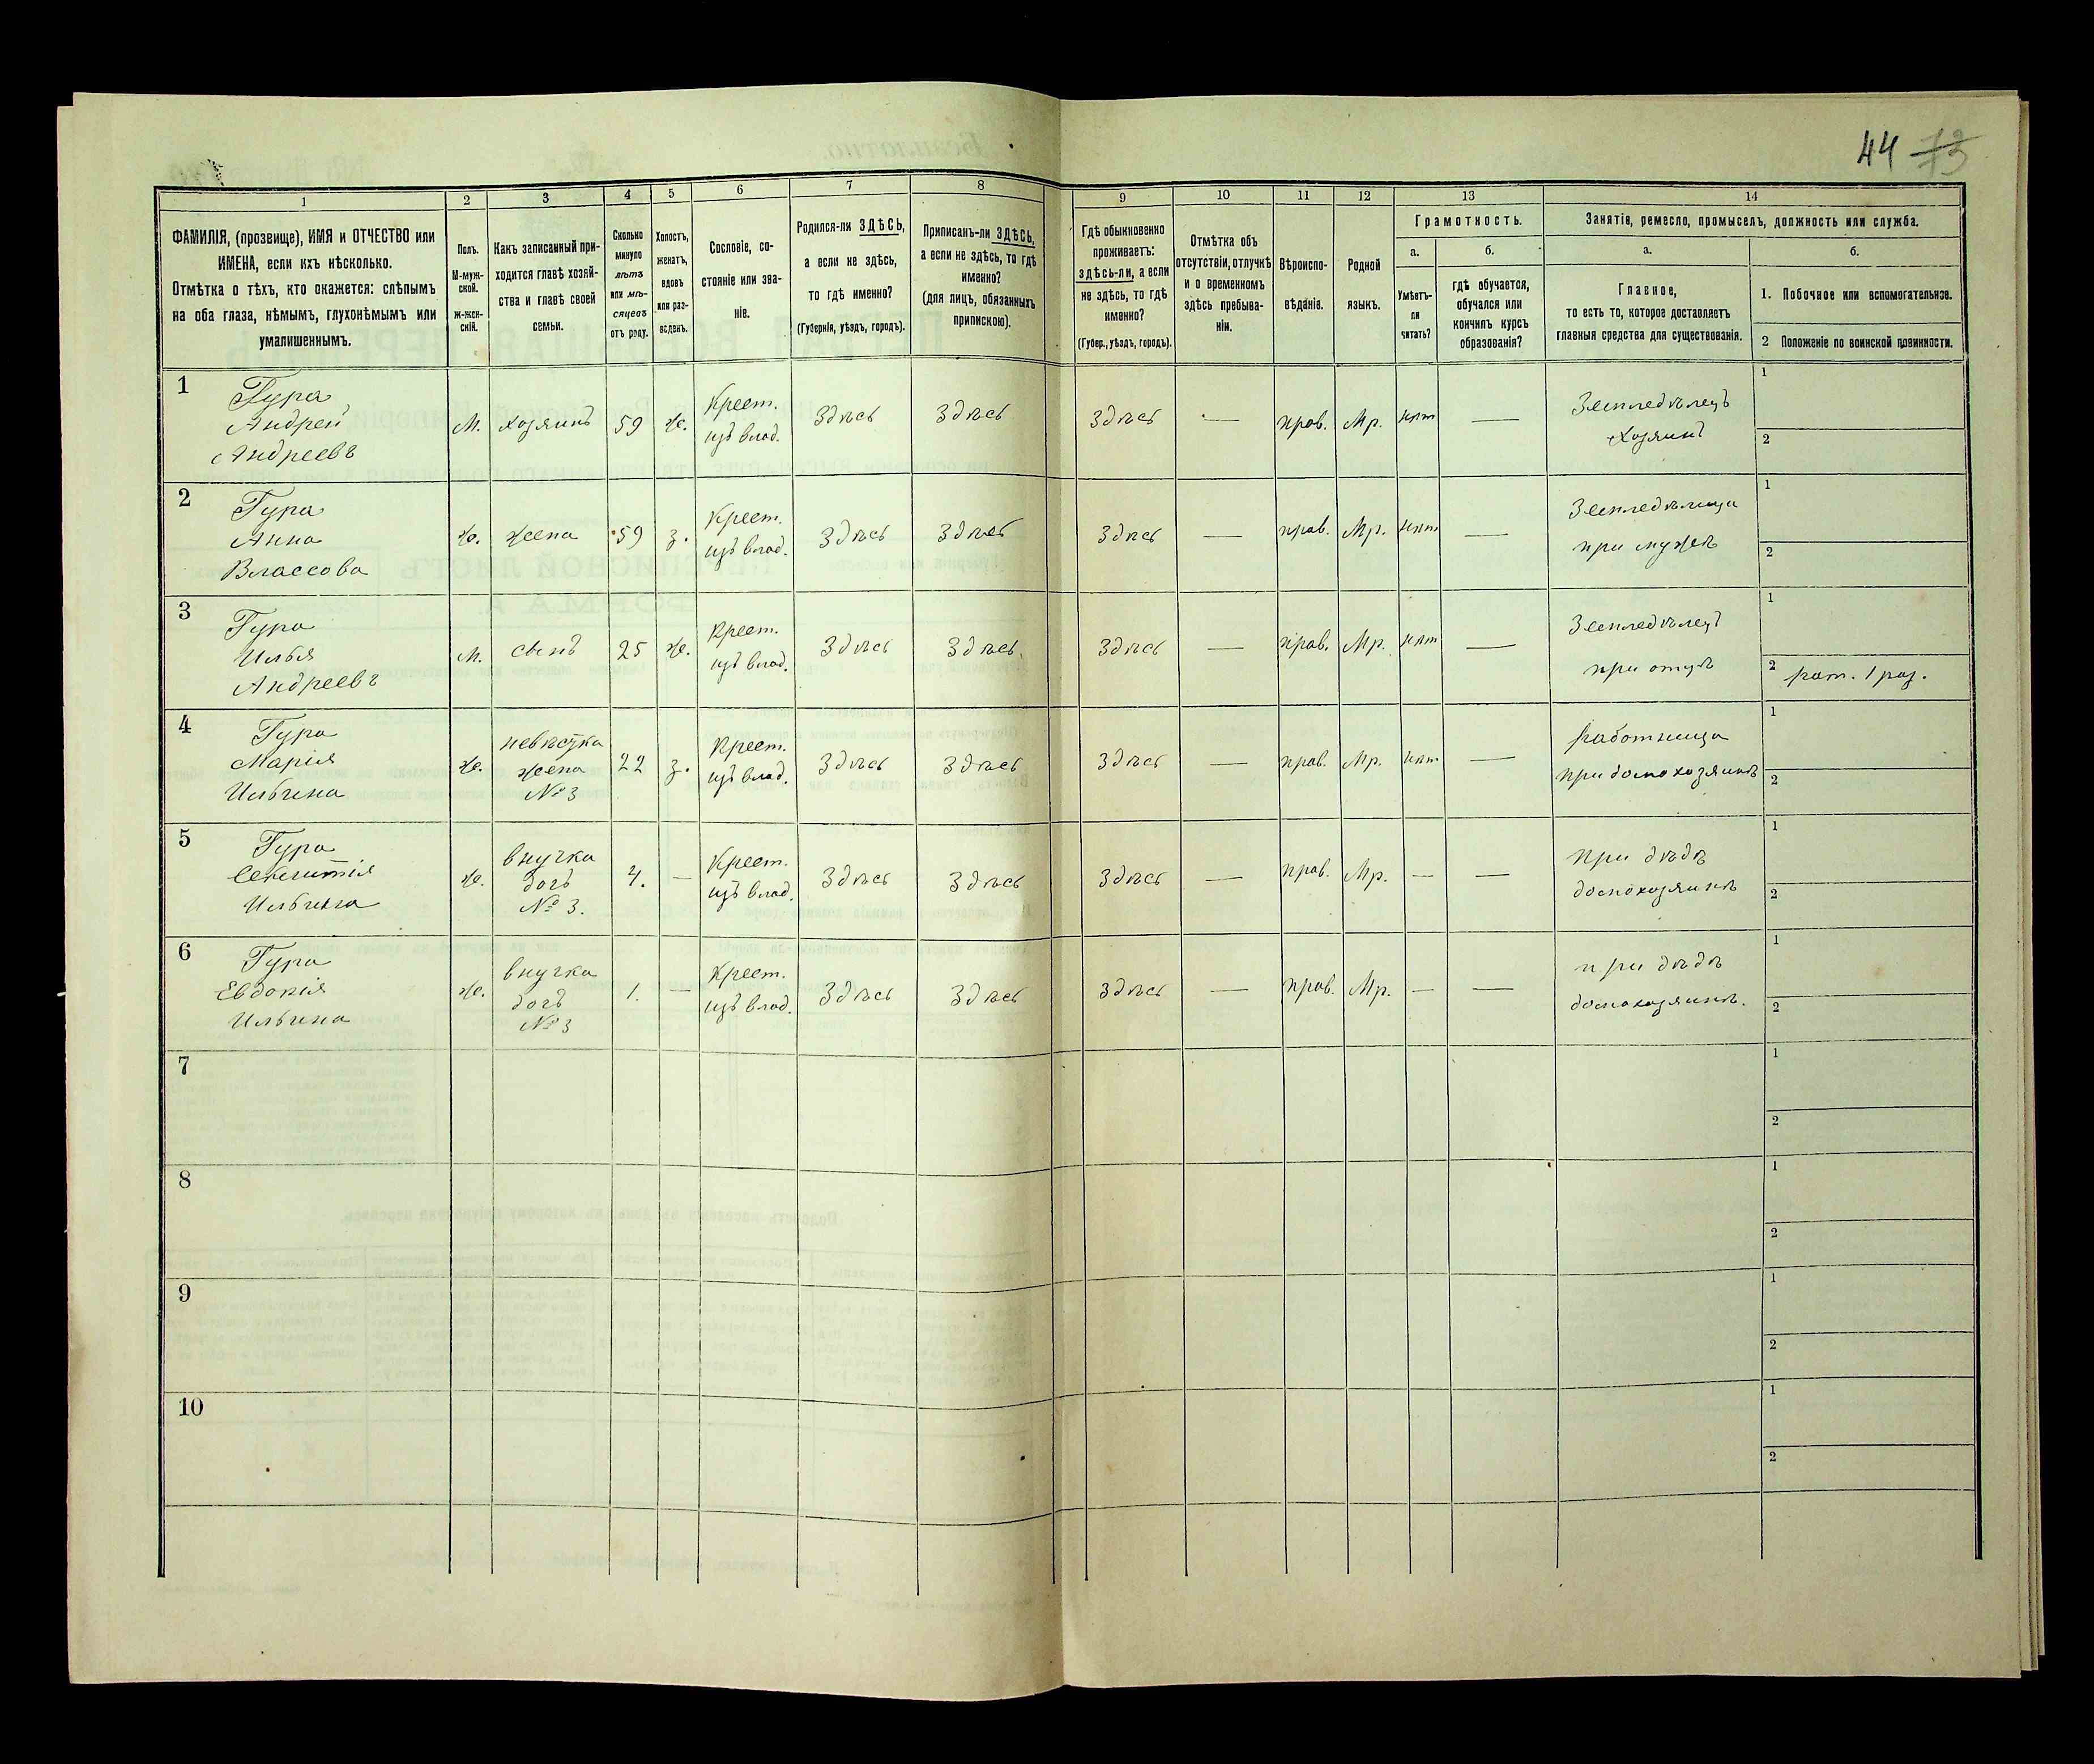 44 73
1
2
3
4
5
6
7
8
9
10
11
12
13
14
ФАМИЛІЯ, (прозвище), ИМЯ и ОТЧЕСТВО или
ИМЕНА, если ихъ нѣсколько.
Отмѣтка о тѣхъ, кто окажется: слѣпымъ
на оба глаза, нѣмымъ, глухонѣмымъ или
умалишеннымъ.
Полъ.
М-муж-
ской.
ж-жен-
скій.
Какъ записанный при-
ходится главѣ хозяй-
ства и главѣ своей
семьи.
Сколько
минуло
лѣтъ
или мѣ-
сяцевъ
отъ роду.
Холостъ,
женатъ,
вдовъ
или раз-
веденъ.
Сословіе, со-
стояніе или зва-
ніе.
Родился-ли ЗДѢСЬ,
а если не здѣсь,
то гдѣ именно?
(Губернія, уѣздъ, городъ).
Приписанъ-ли ЗДѢСЬ,
а если не здѣсь, то гдѣ
именно?
(для лицъ, обязанныхъ
припискою).
Гдѣ обыкновенно
проживаетъ:
здѣсь-ли, а если
не здѣсь, то гдѣ
именно?
(Губер., уѣздъ, городъ).
Отмѣтка объ
отсутствіи, отлучкѣ
и о временномъ
здѣсь пребыва-
ніи.
Вѣроиспо-
вѣданіе.
Родной
языкъ.
Грамотность.
а.
Умѣетъ-
ли
читать?
б.
гдѣ обучается,
обучался или
кончилъ курсъ
образованія?
Занятіе, ремесло, промыселъ, должность или служба.
а.
Главное,
то есть то, которое доставляетъ
главныя средства для существованія.
б.
1. Побочное или вспомогательное.
2 Положеніе по воинской повинности.
1
Гура
Андрей
Андреевъ
М. хозяинъ 59 ж.
Крест.
изъ влад.
Здѣсь Здѣсь Здѣсь — прав. Мр. нѣт —
Земледѣлецъ
Хозяинъ
1
2
2
Гура
Анна
Власова
ж. жена 59 з.
Крест.
изъ влад.
Здѣсь Здѣсь Здѣсь — прав. Мр. нѣт —
Земледѣлица
при мужѣ
1
2
3
Гура
Илья
Андреевъ
М. сынъ 25 ж.
Крест.
изъ влад.
Здѣсь Здѣсь Здѣсь — прав. Мр. нѣт —
Земледѣлецъ
при отцѣ
1
2 рат. 1 раз.
4
Гура
Марія
Ильина
ж.
невѣстка
жена
№ 3
22 з.
Крест.
изъ влад.
Здѣсь Здѣсь Здѣсь — прав. Мр. нѣт —
работница
при домохозяинѣ
1
2
5
Гура
Ильина
ж.
внучка
дочь
№ 3.
4. —
Крест.
изъ влад.
Здѣсь Здѣсь Здѣсь — прав. Мр. — —
при дѣдѣ
домохозяинѣ
1
2
6
Гура
Евдокія
Ильина
ж.
внучка
дочь
№ 3
1. —
Крест.
изъ влад.
Здѣсь Здѣсь Здѣсь — прав. Мр. — —
при дѣдѣ
домохозяинѣ.
1
2
7
1
2
8
1
2
9
1
2
10
1
2